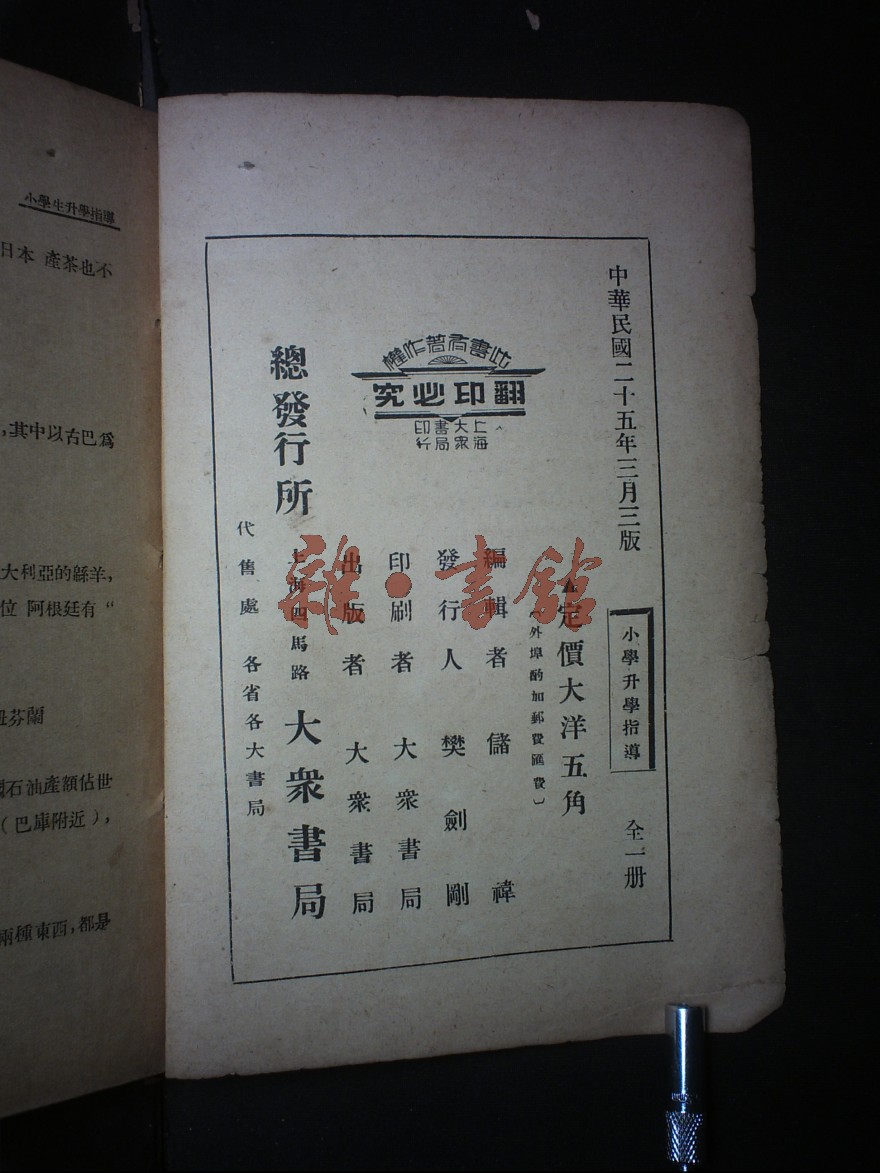 中華民國二十五年三月三版
小學升學指導
全一册
定價大洋五角
外埠酌加郵費匯費
編輯者 儲禕
發行人 樊劍剛
印刷者 大衆書局
出版者 大衆書局
總發行所 上海四馬路 大衆書局
代售處 各省各大書局
此書有著作權
翻印必究
上海
大衆
書局
印行
雜·書館
小學生升學指導
日本 產茶也不
,其中以古巴爲
大利亞的緜羊,
位 阿根廷有“
芬蘭
石油產額佔世
(巴庫附近),
兩種東西,都是